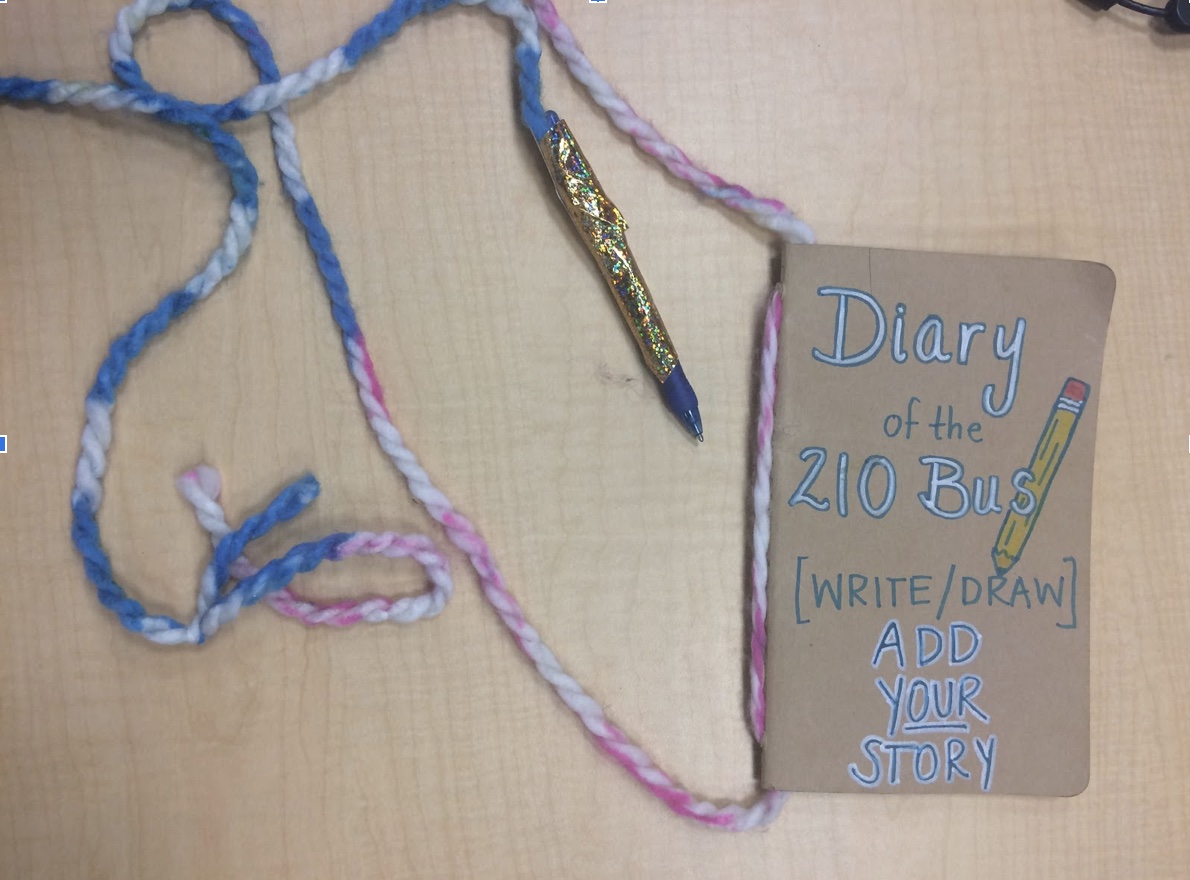 Diary
of the
210 Bus
[WRITE/DRAW]
ADD
YOUR
STORY